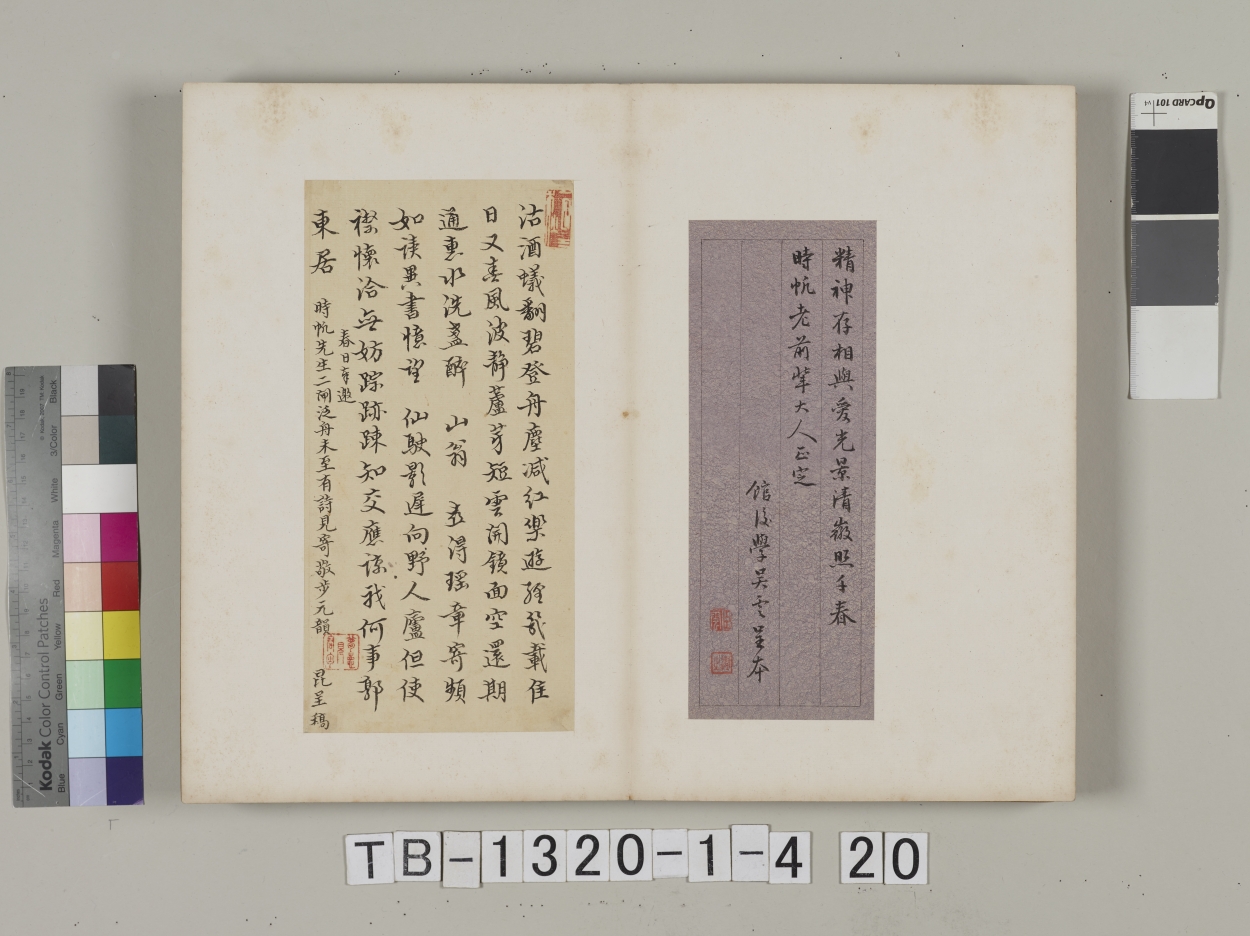 精神存相與愛光景清嚴照千春
時帆老前輩大人正定
館後學吳雲呈本
沽酒蟻翻碧登舟塵減紅樂遊經幾載佳
日又春風波靜蘆芽短雲開鏡面空還期
通惠水洗盞酹 山翁 
如讀異書憶望 仙駛影遲向野人廬但使
襟懷洽無妨踪跡疎知交應諒我何事郭
東居
春日奉邀
時帆先生二閘泛舟未至有詩見寄敬步元韻
昆呈稿
Kodak Color Control Patches
Blue Cyan Green Yellow Red Magenta White 3/Color Black
QPCARD 101 v4
TB-1320-1-4 20